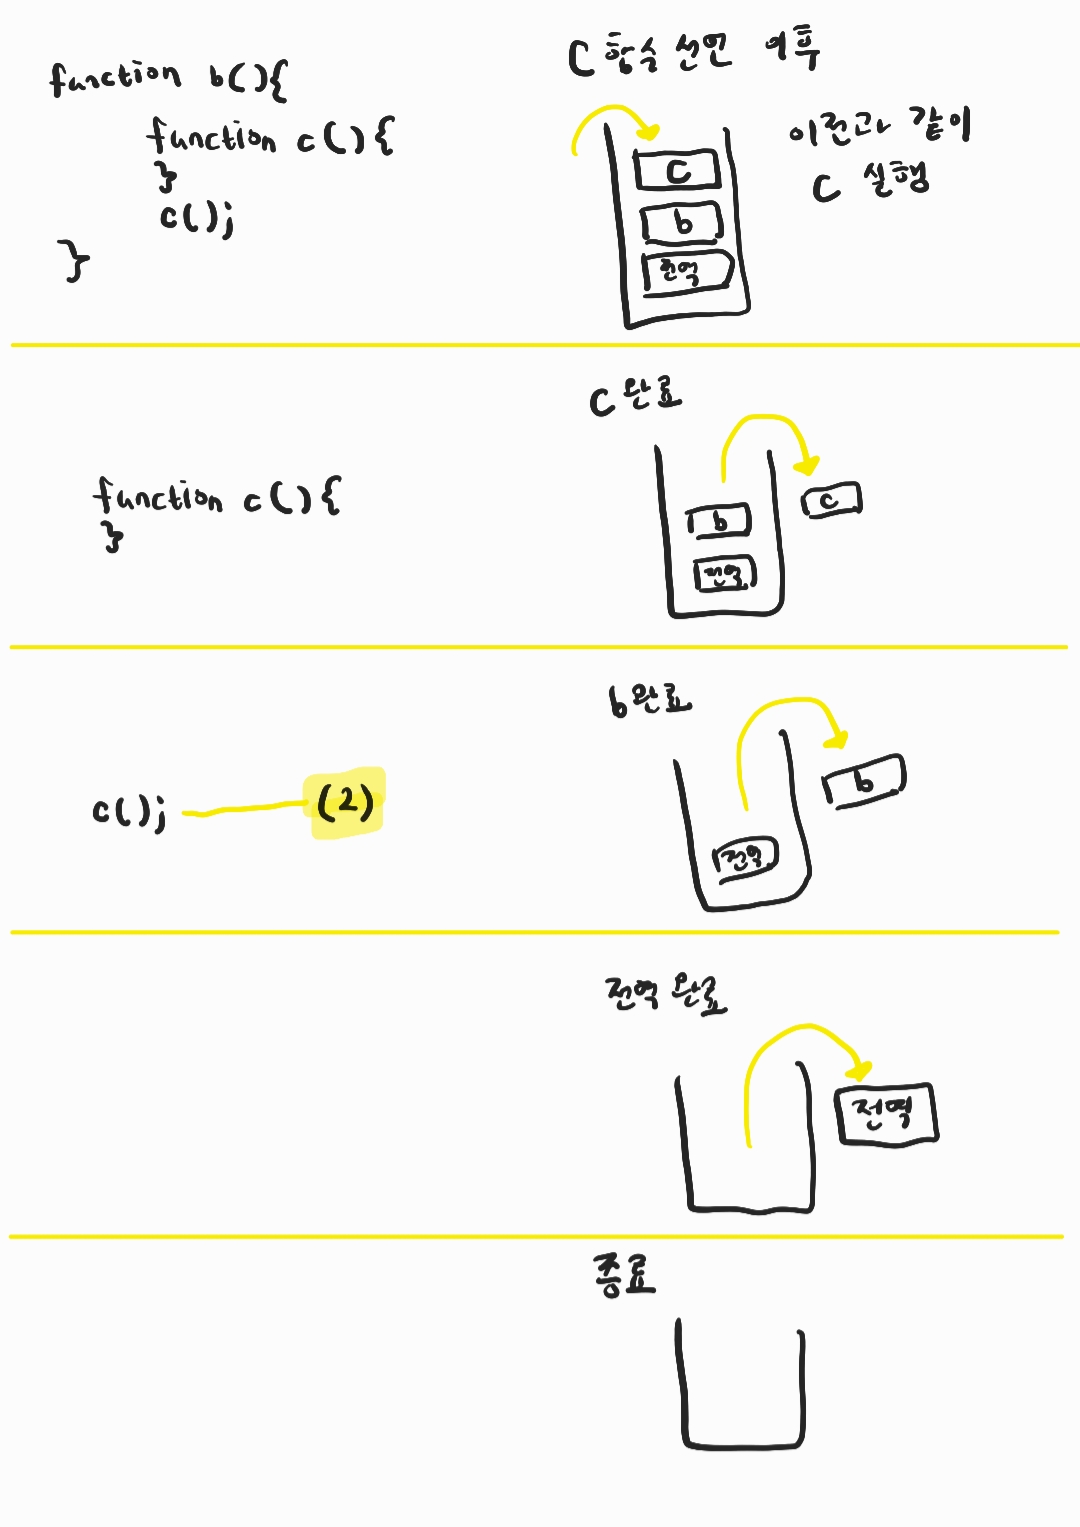 function b(){
function c(){
}
c();
}
C 함수 선언 이후
이전과 같이
C 실행
C
b
전역
function c(){
}
C 완료
b
전역
C
c();
(2)
b 완료
전역
b
전역 완료
전역
종료